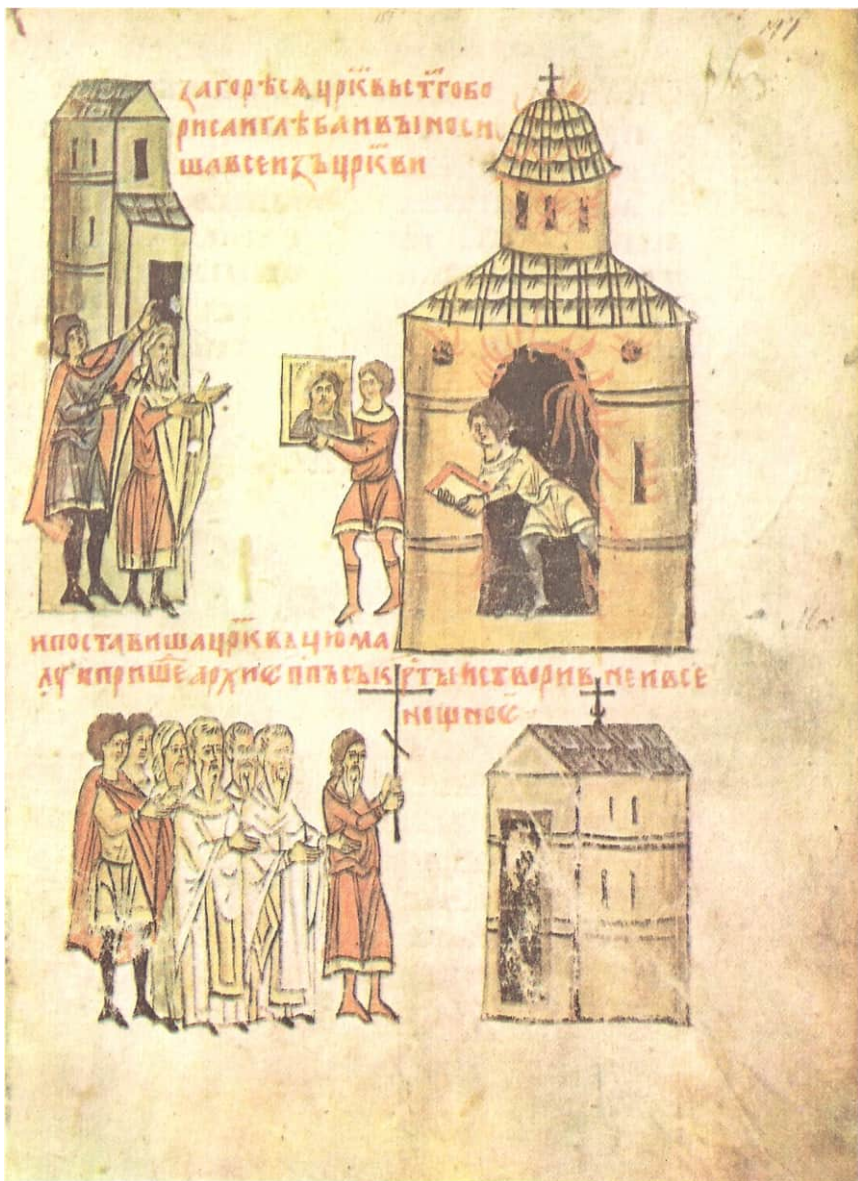 ꙁагорѣсѧ цр҃квьст҃гобо
рисаиглѣбаивъıноси
шавсеиꙁъцр҃кви
ипоставишацр҃квьцюма
лу ипришеⷣархиѡп҃пъсък рⷭ҇тъıистворивнеивсе
нощноѥ